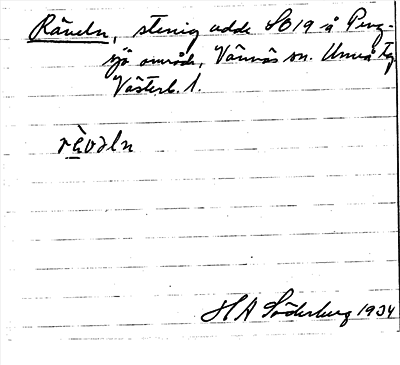 Räveln, stenig udde SO 19 å Peng-
sjö område, Vännäs sn. Umeå tg
Västerb. l.
rèvəln
H A Söderberg 1934